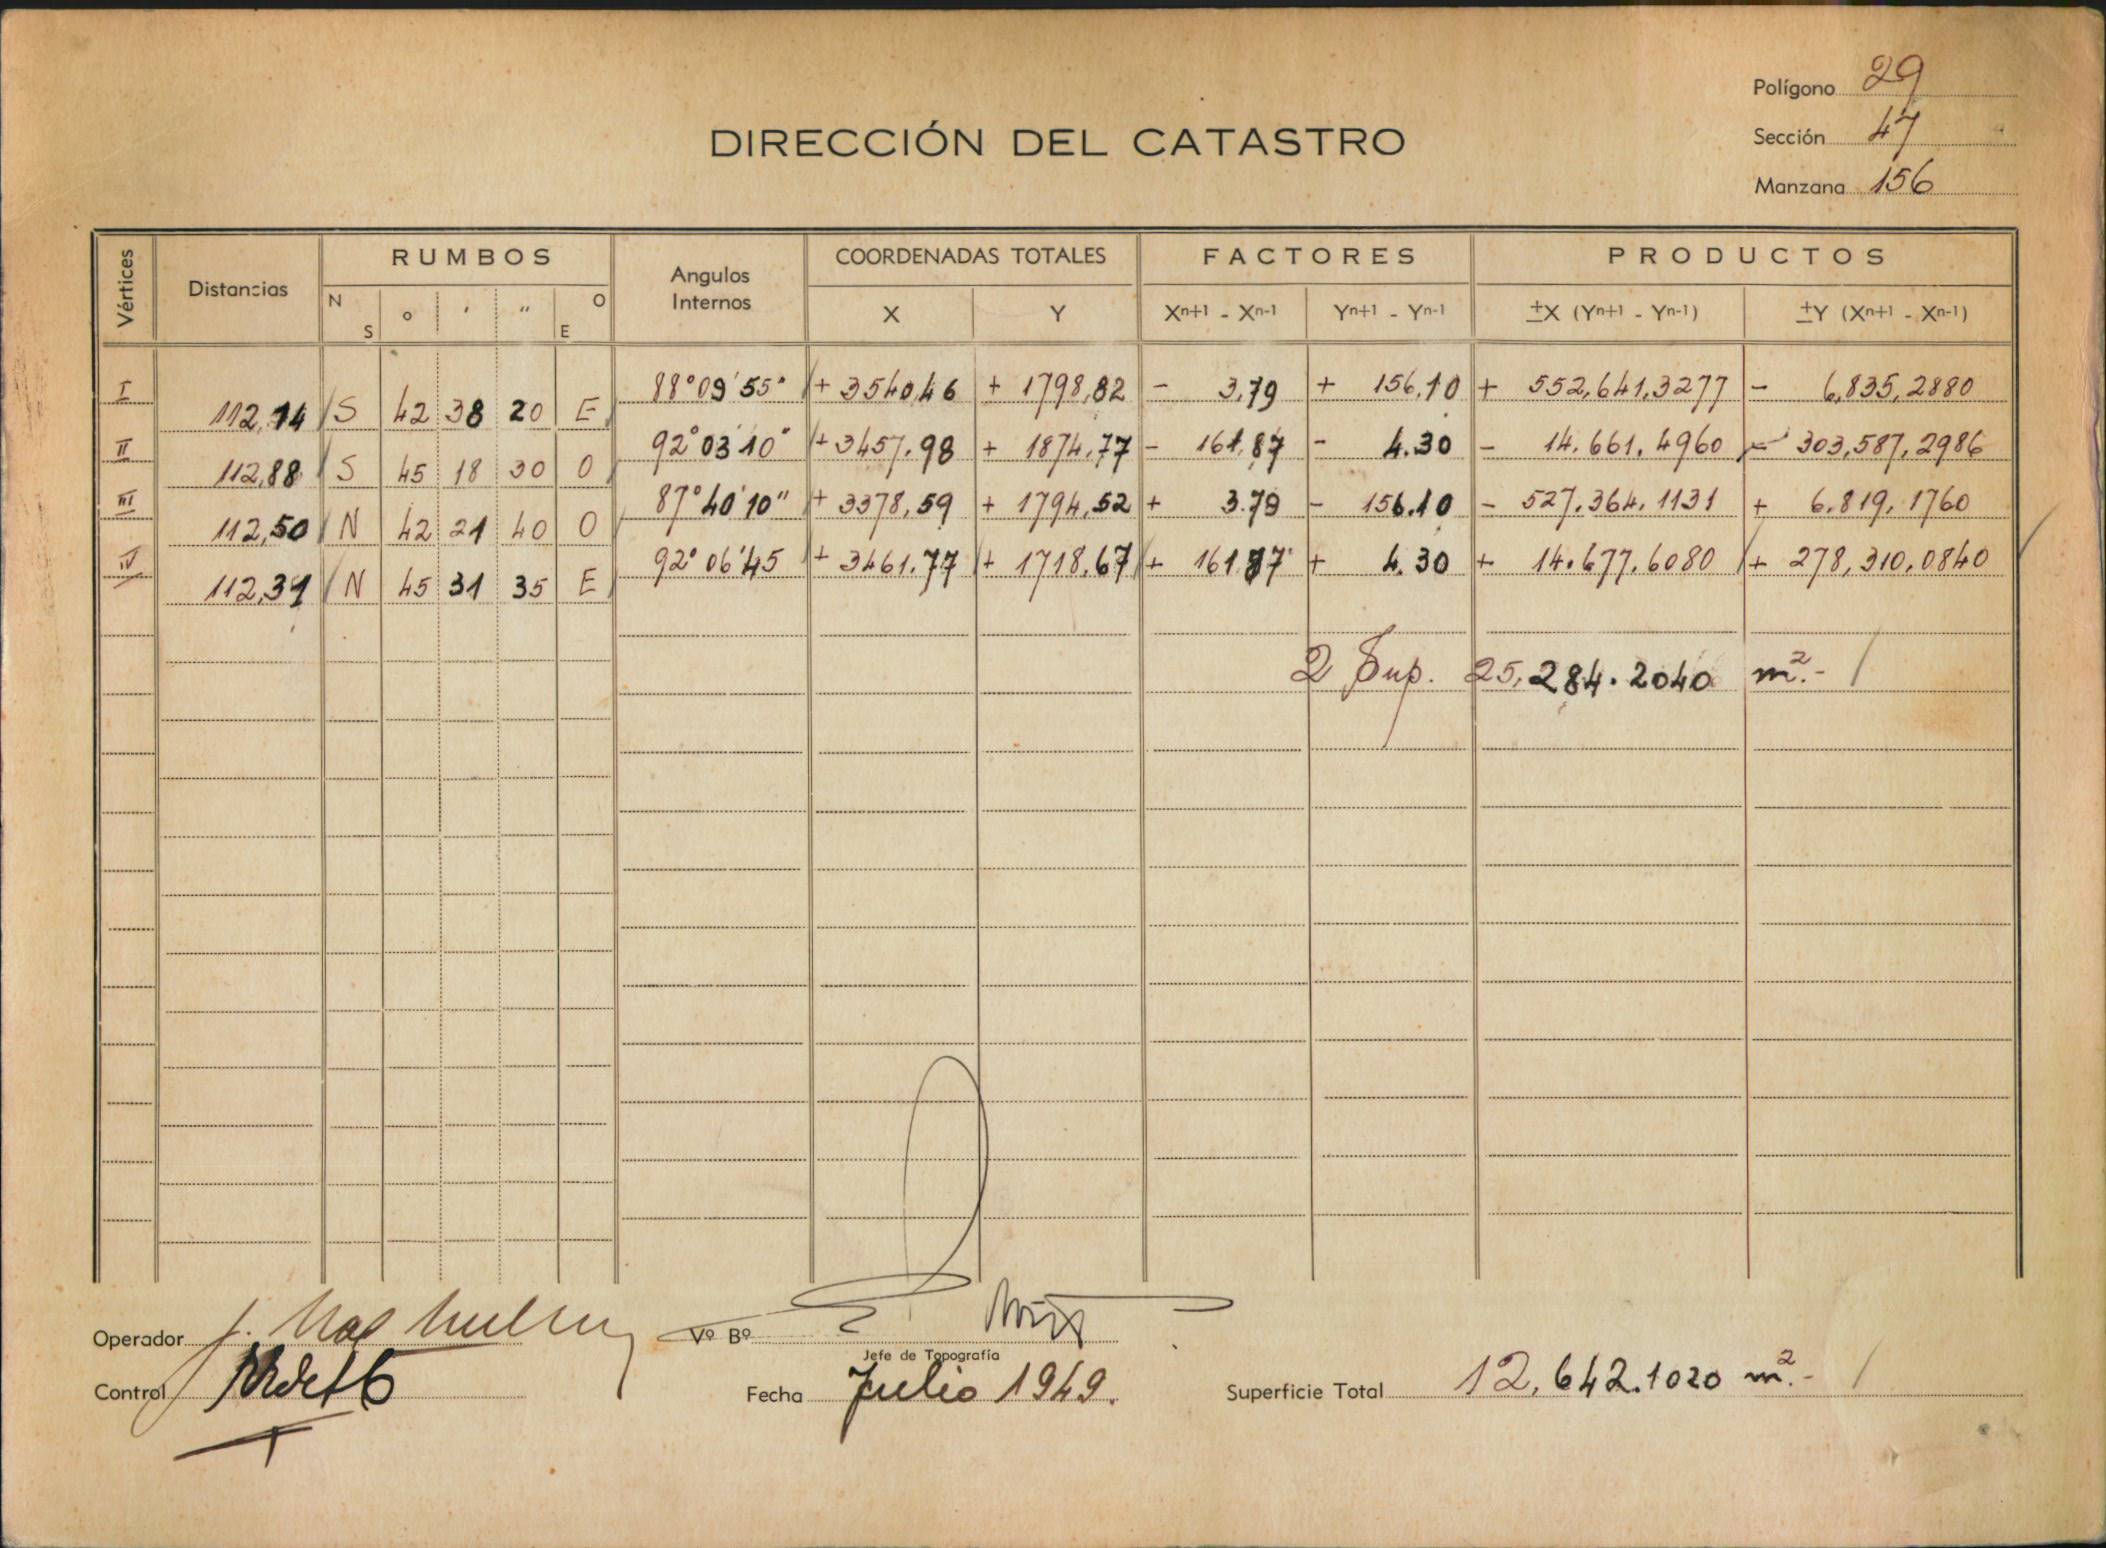 Polígono 29
Sección 47
Manzana 156
DIRECCIÓN DEL CATASTRO
Vértices Distancias RUMBOS Angulos Internos COORDENADAS TOTALES FACTORES PRODUCTOS
N S ° ' " O E X Y Xn+1 - Xn-1 Yn+1 - Yn-1 ±X (Yn+1 - Yn-1) ±Y (Xn+1 - Xn-1)
I 88°09'55" + 3540,46 + 1798,82 - 3,79 + 156,10 + 552,641,3277 - 6,835,2880
112,14 S 42 38 20 E
II 92°03'10" + 3457,98 + 1874,77 - 161,87 - 4.30 - 14.661.4960 - 303,587,2986
112,88 S 45 18 30 O
III 87°40'10" + 3378,59 + 1794,52 + 3.79 - 156.10 - 527.364.1131 + 6.819,1760
112,50 N 42 21 40 O
IV 92°06'45 + 3461.77 + 1718,67 + 161.87 + 4.30 + 14.677.6080 + 278,310,0840
112,31 N 45 31 35 E
2 Sup. 25,284.2040 m².-
Operador
Vº Bº
Jefe de Topografía
Control
Fecha Julio 1949.
Superficie Total 12,642.1020 m².-